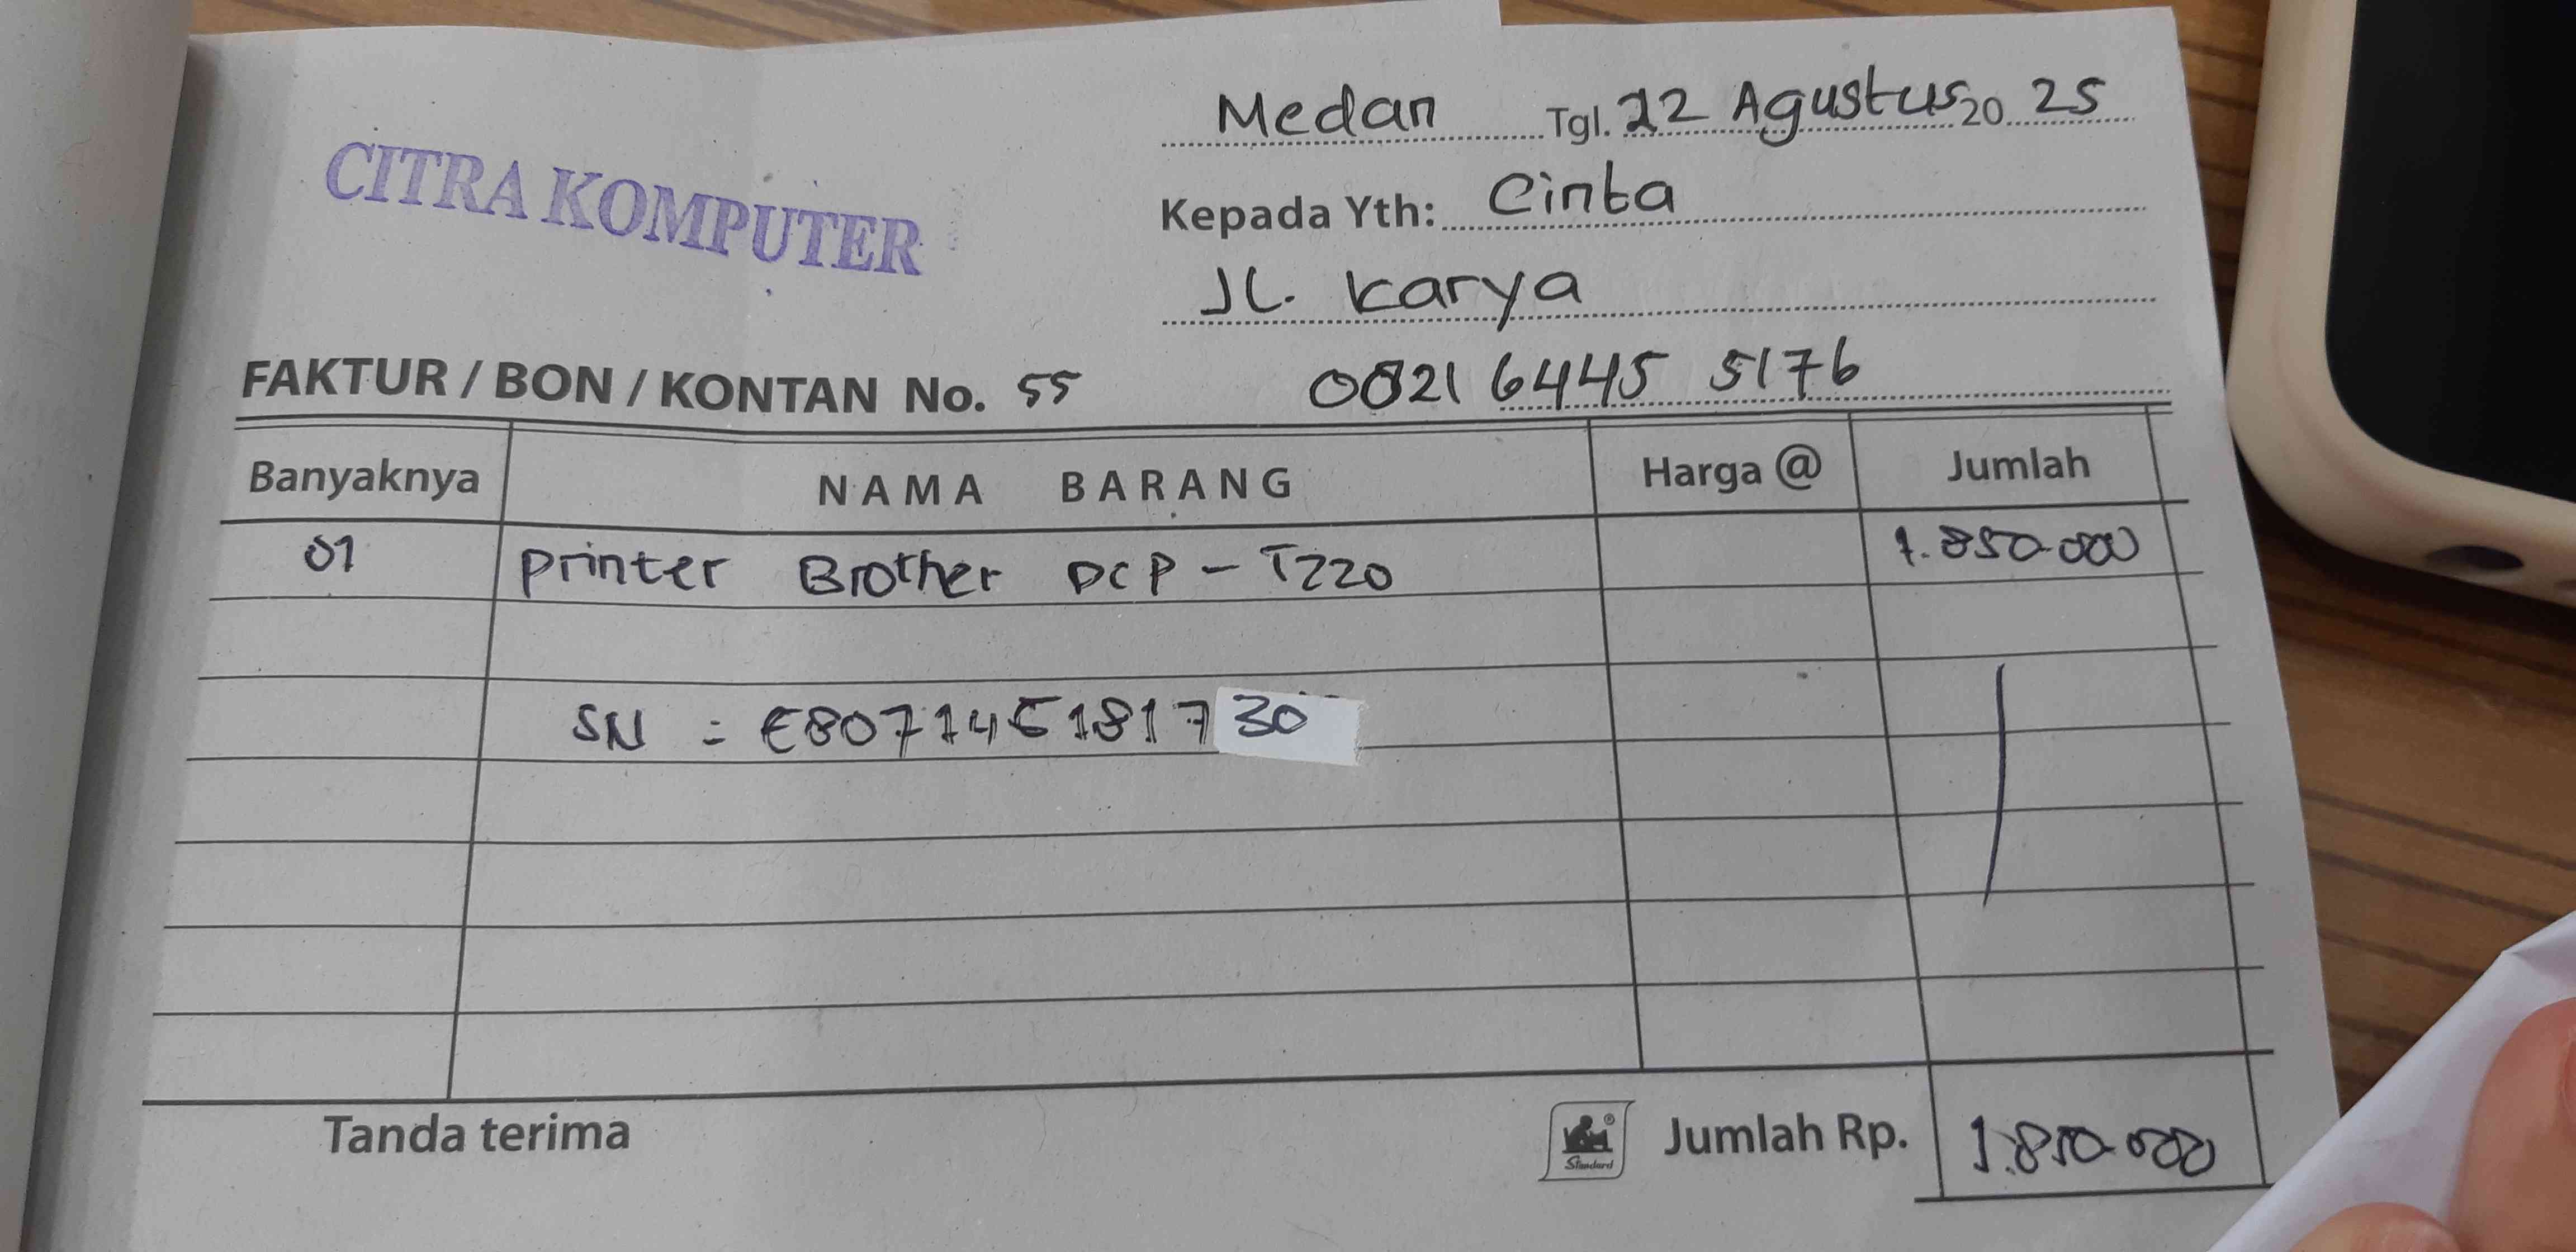 Medan Tgl. 22 Agustus 20 25
CITRA KOMPUTER
Kepada Yth: Cinta
Jl. Karya
FAKTUR / BON / KONTAN No. 55
0821 6445 5176
Banyaknya NAMA BARANG Harga @ Jumlah
01 Printer Brother DCP - T220 1.850.000
SN = E80714E181730
Tanda terima
Standard
Jumlah Rp. 1.850.000